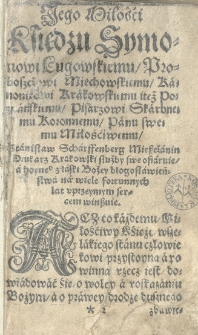 Jego Miłości
Księdzu Symo-
nowi Ługowskiemu / Pro-
boszczowi Miechowskiemu / Ká-
nonikowi Krákowskiemu też Po-
znáńskiemu / Pisárzowi Skárbne-
mu Koronnemu / Pánu swe-
mu Miłościwemu /
Stánisław Schárffenberg Mieszczánin
y Drukarz Krákowski służby swe ofiáruie /
á hoyney z łáski Bożey błogosłáwień-
stwá ná wiele fortunnych
lat vprzeymym ser-
cem winszuie.
co káżdemu Mi-
łościwy Księże wsze-
lákiego stanu człowie-
kowi przystoyna á po-
winna rzecz iest do-
wiádowáć sie o woley á roskazániu
Bożym / á o práwey drodze dusznego
* 2 zbáwie-